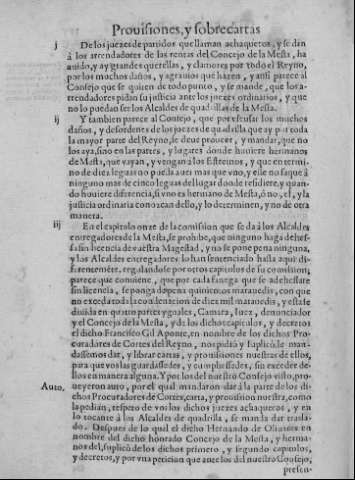 Prouisiones, y sobrecartas
j De los juezes de partidos que llaman achaqueros, y se dan
à los arrendadores de las rentas del Concejo de la Mesta, ha
auido, y ay grandes querellas, y clamores por todo el Reyno,
por los muchos daños, y agrauios que hazen, y ansi parece al
Consejo que se quiten de todo punto, y se mande, que los a-
rrendadores pidan su justicia ante los juezes ordinarios, y que
no lo puedan ser los Alcaldes de quadrillas de la Mesta.
ij Y tambien parece al Consejo, que por escusar los muchos
daños, y desordenes de los juezes de quadrilla que ay por toda
la mayor parte del Reyno, se deue proueer, y mandar, que no
los aya, sino en las partes, y lugares donde huuiere hermanos
de Mesta, que vayan, y vengan a los Estremos, y que en termi-
no de diez leguas no pueda auer mas que vno, y esse no saque à
ninguno mas de cinco leguas del lugar donde residiere, y quan-
do huuiere diferencia, si vno es hermano de Mesta, ò no, el, y la
justicia ordinaria conozcan dello, y lo determinen, y no de otra
manera.
iij En el capitulo onze de la comission que se da à los Alcaldes
entregadores de la Mesta, se prohibe, que ninguno haga dehes-
sa sin licencia de vuestra Magestad, y no se pone pena ninguna,
y los Alcaldes entregadores lo han sentenciado hasta aqui di-
ferentemente, reglandose por otros capitulos de su comission,
parece que conuiene, que por cada fanega que se adehessare
sin licencia, se ponga de pena quinientos marauedis, con que
no exceda toda la condenacion de diez mil marauedis, y esta se
diuida en quatro partes yguales, Camara, Iuez, denunciador
y el Concejo de la Mesta, y de los dichos capitulos, y decretos
el dicho Francisco Gil Aponte, en nombre de los dichos Pro-
curadores de Cortes del Reyno, nos pidiò y suplicò le man-
dassemos dar, y librar cartas, y prouisiones nuestras de ellos,
para que vos las guardassedes, y cumpliessedes, sin exceder de-
llos en manera alguna. Y por los del nuestro Consejo visto, pro-
Auto, ueyeron auto, por el qual mandaron dar à la parte de los di-
chos Procuradores de Cortes, carta, y prouision nuestra, como
la pedian, respeto de vos los dichos juezes achaqueros, y en
lo tocante à los Alcaldes de quadrilla, se manda dar trasla-
do. Despues de lo qual el dicho Hernando de Oliuares en
nombre del dicho honrado Concejo de la Mesta, y herma-
nos del, suplicò de los dichos primero, y segundo capitulos,
y decretos, y por vna peticion que ante los del nuestro Consejo,
presen-